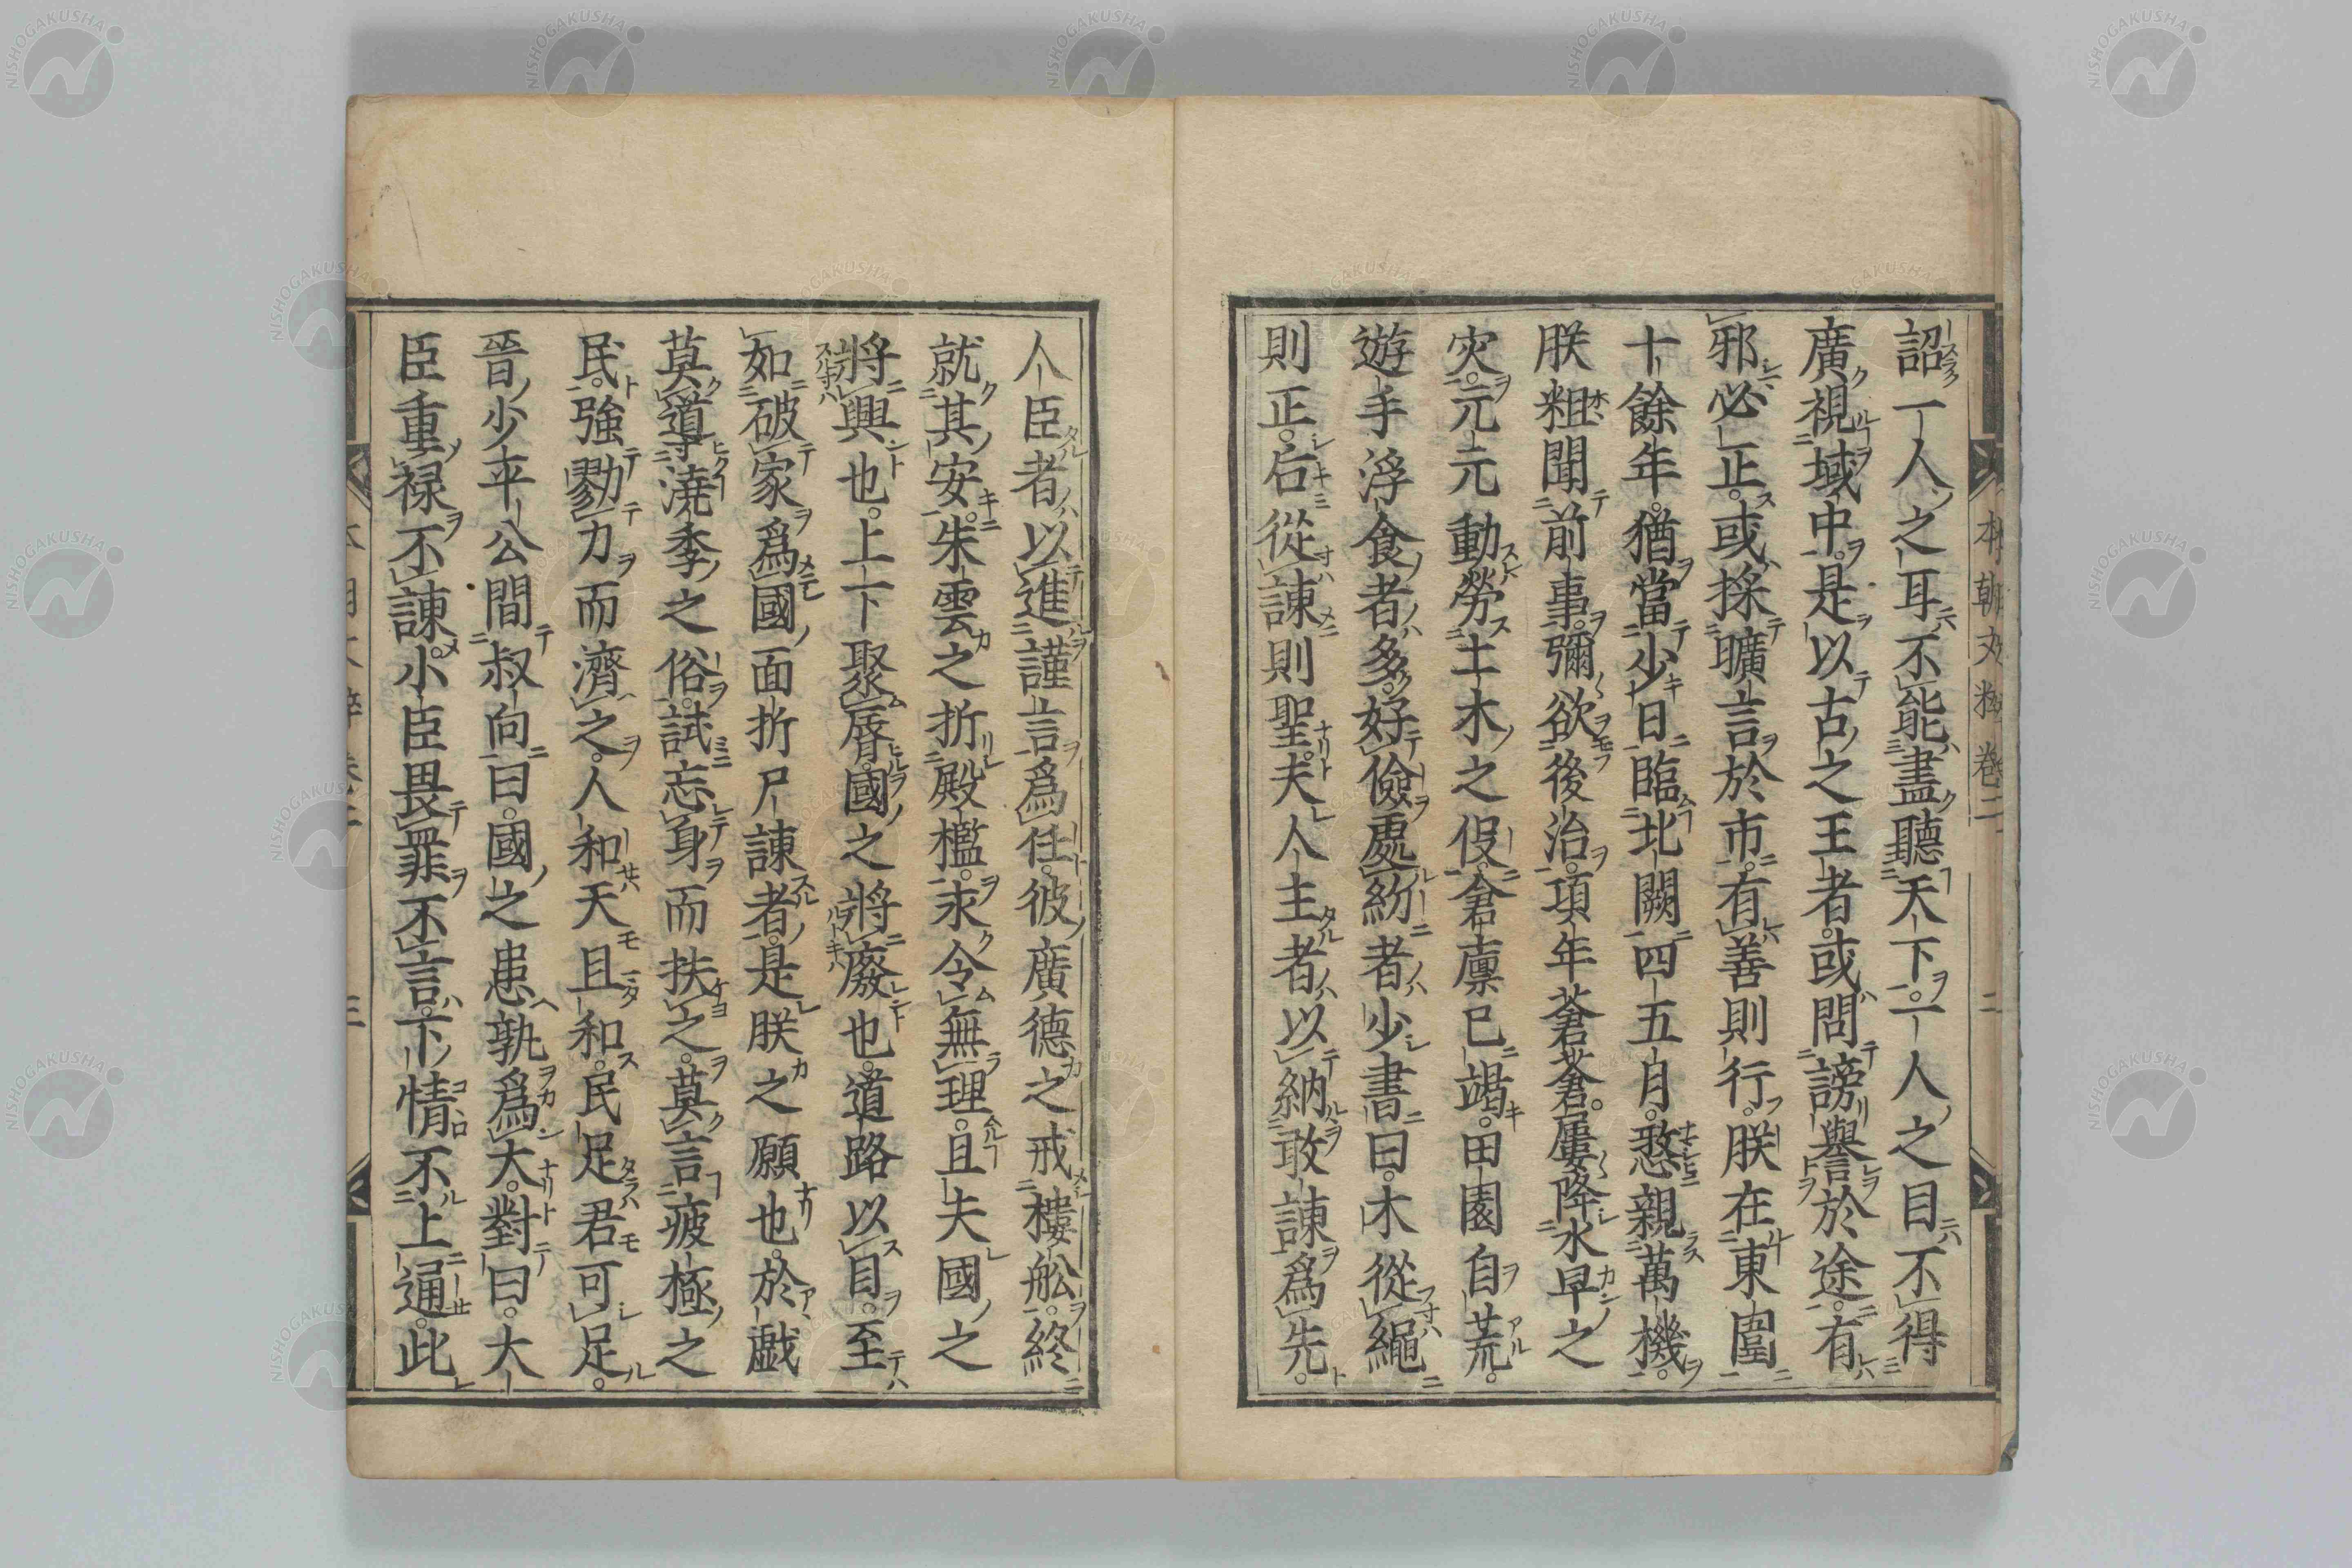 詔一人之耳不能盡聽天下。一人之目不得
廣視域中。是以古之王者。或問謗譽於途。有
邪必正。或採曠言於市。有善則行。朕在東圍
十餘年。猶當少日臨北闕四五月。憨親萬機。
朕粗聞前事。彌欲後治。項年蒼蒼。屢降水旱之
灾。元元動勞土木之役倉廩已竭。田園自荒。
遊手浮食者多。好儉處紛者少書曰。木從繩
則正。后從諫則聖。夫人主者以納敢諫爲先。
本朝文粹卷二
二
人臣者以進謹言爲任。彼廣德之戒樓舩。終
就其安。朱雲之折殿檻。求令無理。且夫國之
將興也。上下聚脣。國之將廢也。道路以目。至
如破家爲國面折尸諫者。是朕之願也。於戯
莫導澆季之俗。試忘身而扶之。莫言疲極之
民。強勠力而濟之。人和天且和。民足君可足。
晉少平公間叔向曰。國之患孰爲大。對曰。大
臣重禄不諫。小臣畏罪不言。下情不上通。此
三